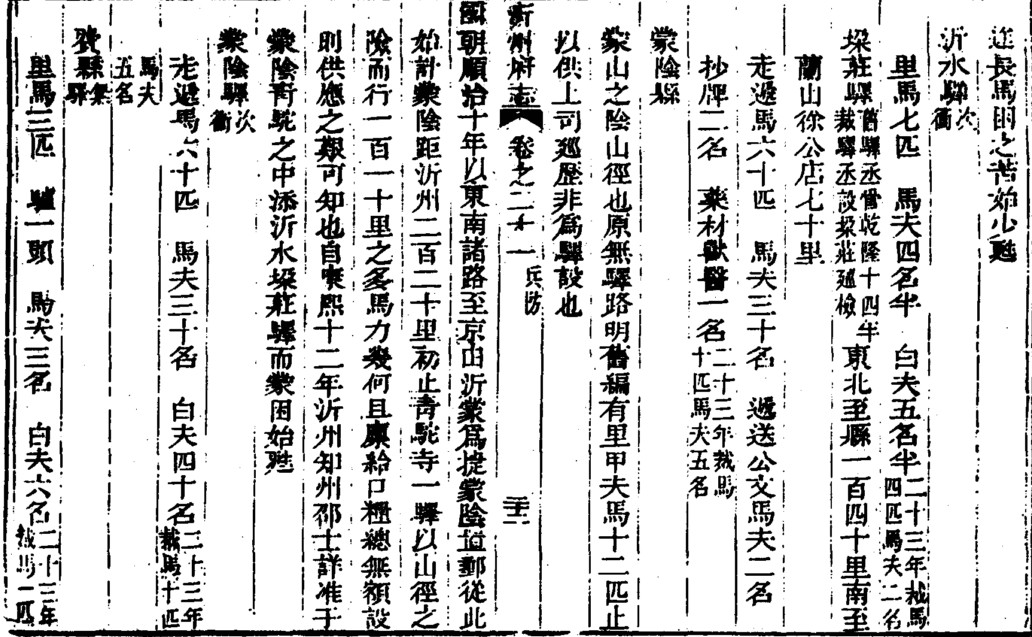 迋長馬困之苦始少甦
沂水驛次衝
里馬七匹　馬夫四名半　白夫五名半二十三年裁馬四匹馬夫二名
垜莊驛舊驛丞管乾隆十四年裁驛丞設垜莊廵檢　東北至縣一百四十里南至
蘭山徐公店七十里
走遞馬六十匹　馬夫三十名　遞送公文馬夫二名
抄牌二名　藥材獸醫一名二十三年裁馬十匹馬夫五名
蒙陰縣
蒙山之陰山徑也原無驛路明舊編有里甲夫馬十二匹止
以供上司廵歷非爲驛設也
沂州府志　卷之二十一　兵防
國朝順治十年以東南諸路至京由沂蒙爲捷蒙陰道郵從此
始計蒙陰距沂州二百二十里初止靑駝寺一驛以山徑之
險而行一百一十里之多馬力幾何且廪給口糧總無額設
則供應之艱可知也自康熙十二年沂州知州邵士詳准于
蒙陰靑駝之中添沂水垜莊驛而蒙困始甦
蒙陰驛次衝
走遞馬六十匹　馬夫三十名　白夫四十名二十三年裁馬十匹
馬夫五名
費縣無驛
里馬三匹　驢一頭　馬夫三名　白夫六名二十三年裁馬一匹